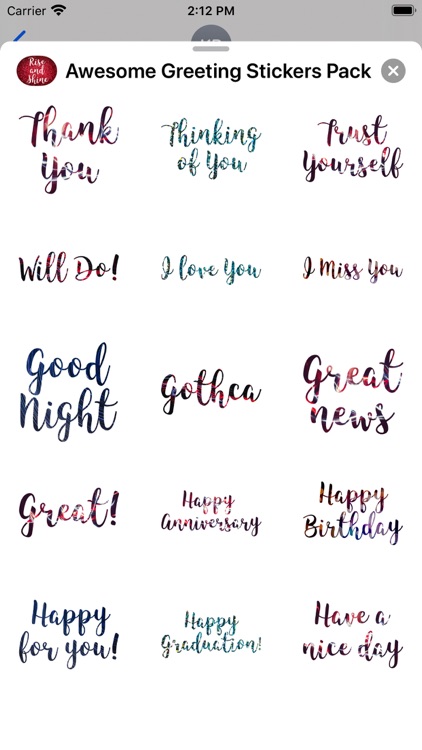 Carrier 2:12 PM
Rise
and
Shine
Awesome Greeting Stickers Pack
Thank
You
Thinking
of You
Trust
Yourself
Will Do!
I love You
I Miss You
Good
Night
Gothca
Great
news
Great!
Happy
Anniversary
Happy
Birthday
Happy
for you!
Happy
Graduation!
Have a
nice day